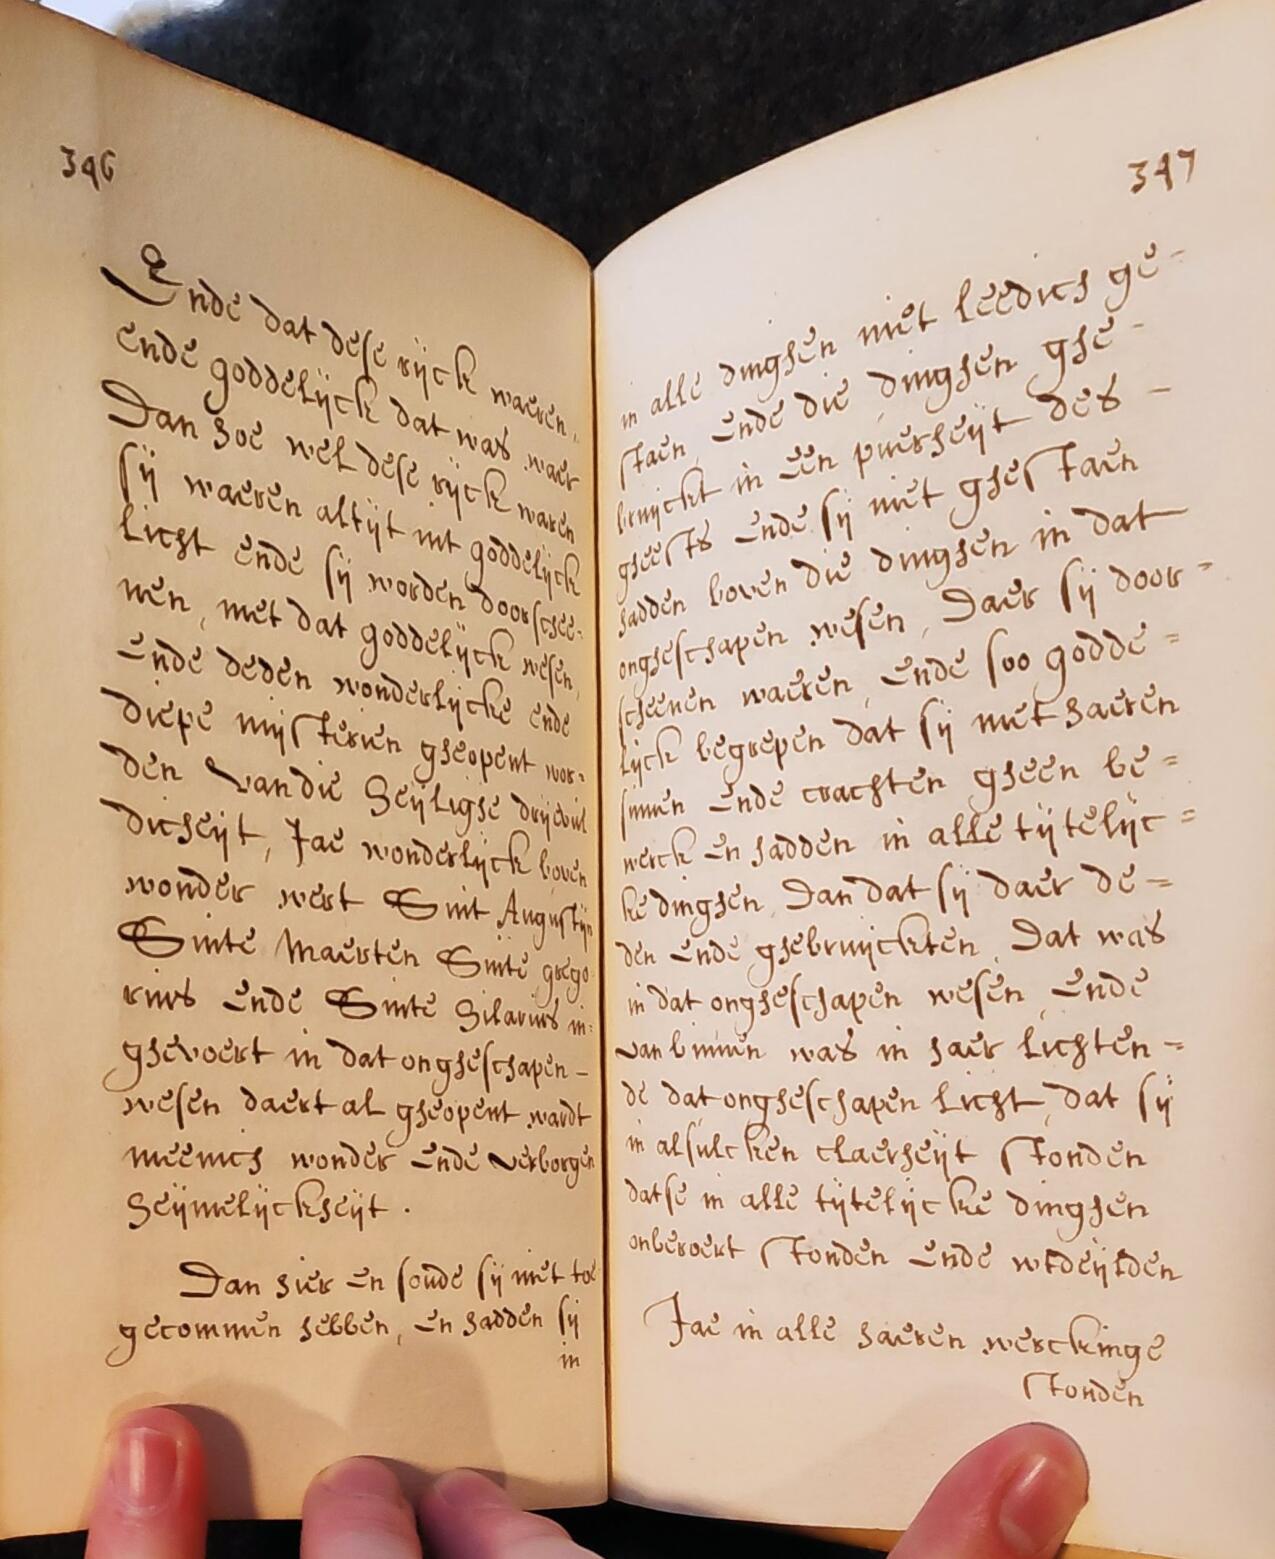 346
Ende dat dese rijck waeren,
ende goddelijck dat was waer
Dan hoe wel dese rijck waren
sij waeren altijt int goddelijck
licht ende sij worden doorschee-
nen, met dat goddelijck wesen,
Ende deden wonderlijcke ende
diepe mijsterien gheopent wor-
den van die heijlighe drijevul
dicheijt, Jae wonderlijck boven
wonder wert Sint Augustijn
Sinte Maerten Sinte grego
rius ende Sinte hilarius in-
ghevoert in dat ongheschapen-
wesen daert al gheopent wardt
meenich wonder ende verborgen
heijmelijckheijt.
Dan hier en soude sij niet toe
gecommen hebben, en hadden sij
in
347
in alle dinghen niet leedich ge-
staen, Ende die dinghen ghe-
bruijckt in een puerheijt des-
gheests ende sij niet ghestaen
hadden boven die dinghen in dat
ongheschapen wesen, Daer sij door-
scheenen waeren, ende soo godde-
lijck begrepen dat sij met haeren
sinnen ende crachten gheen be-
werck en hadden in alle tijtelijc-
ke dinghen, Dan dat sij daer de-
den ende ghebruijckten, Dat was
in dat ongheschapen wesen, Ende
van binnen was in haer lichten-
de dat ongheschapen licht, dat sij
in alsulcken claerheijt stonden
datse in alle tijtelijcke dinghen
onberoert stonden ende wtdeijlden
Jae in alle haeren werckinge
stonden